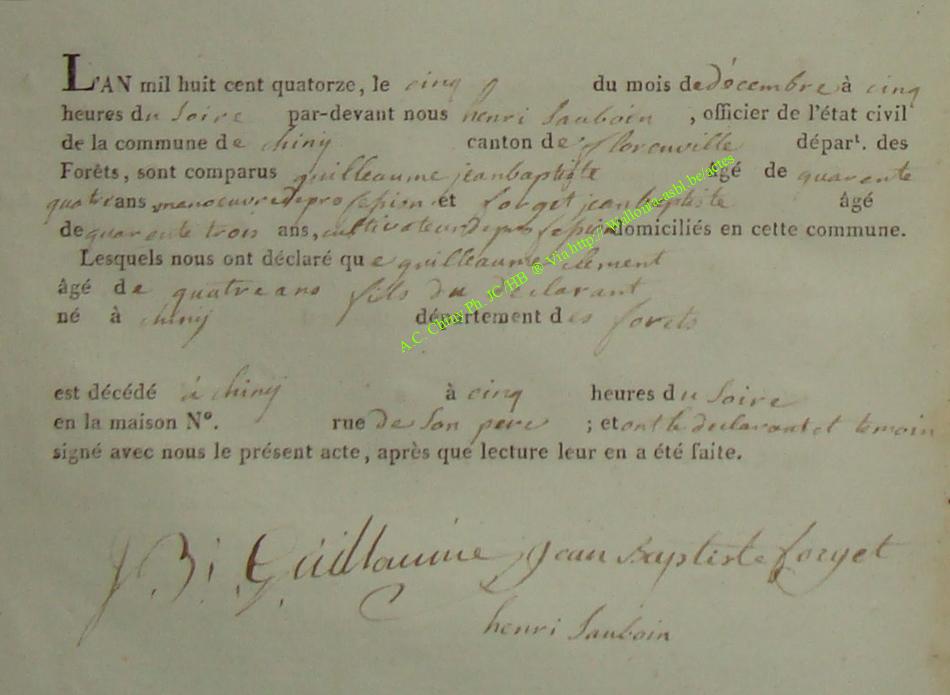 L'AN mil huit cent quatorze, le cinq du mois de décembre à cinq
heures du soire par-devant nous henri Sauboin , officier de l'état civil
de la commune de chinij canton de florenville départ. des
Forêts, sont comparus guilleaume jeanbaptiste âgé de quarente
quatre ans, manoeuvre de profession et forget jeanbaptiste âgé
de quarente trois ans, cultivateur de profession domiciliés en cette commune.
Lesquels nous ont déclaré que guilleaume clement
âgé de quatre ans fils du declarant
né à chinij département des forets
est décédé à chinij à cinq heures du soire
en la maison N°. rue de son pere ; et ont le declarant et temoin
signé avec nous le présent acte, après que lecture leur en a été faite.
J B Guillaume jean Baptiste forget
henri Sauboin
A.C. Chiny Ph. JC/HB ® Via http://Wallonia-asbl.be/actes